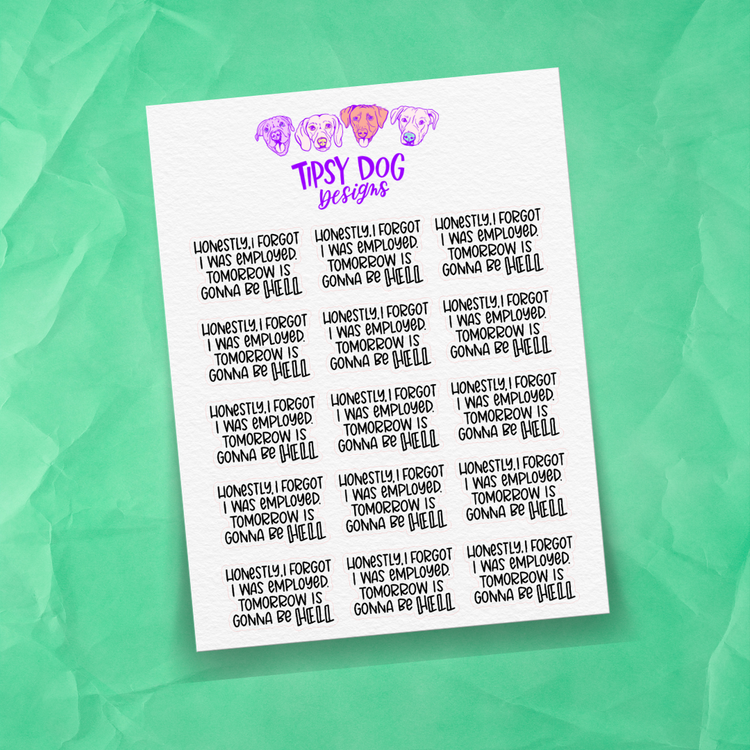 TIPSY DOG
Designs
HONESTLY, I FORGOT HONESTLY, I FORGOT HONESTLY, I FORGOT
I WAS EMPLOYED. I WAS EMPLOYED. I WAS EMPLOYED.
TOMORROW IS TOMORROW IS TOMORROW IS
GONNA BE HELL GONNA BE HELL GONNA BE HELL
HONESTLY, I FORGOT HONESTLY, I FORGOT HONESTLY, I FORGOT
I WAS EMPLOYED. I WAS EMPLOYED. I WAS EMPLOYED.
TOMORROW IS TOMORROW IS TOMORROW IS
GONNA BE HELL GONNA BE HELL GONNA BE HELL
HONESTLY, I FORGOT HONESTLY, I FORGOT HONESTLY, I FORGOT
I WAS EMPLOYED. I WAS EMPLOYED. I WAS EMPLOYED.
TOMORROW IS TOMORROW IS TOMORROW IS
GONNA BE HELL GONNA BE HELL GONNA BE HELL
HONESTLY, I FORGOT HONESTLY, I FORGOT HONESTLY, I FORGOT
I WAS EMPLOYED. I WAS EMPLOYED. I WAS EMPLOYED.
TOMORROW IS TOMORROW IS TOMORROW IS
GONNA BE HELL GONNA BE HELL GONNA BE HELL
HONESTLY, I FORGOT HONESTLY, I FORGOT HONESTLY, I FORGOT
I WAS EMPLOYED. I WAS EMPLOYED. I WAS EMPLOYED.
TOMORROW IS TOMORROW IS TOMORROW IS
GONNA BE HELL GONNA BE HELL GONNA BE HELL